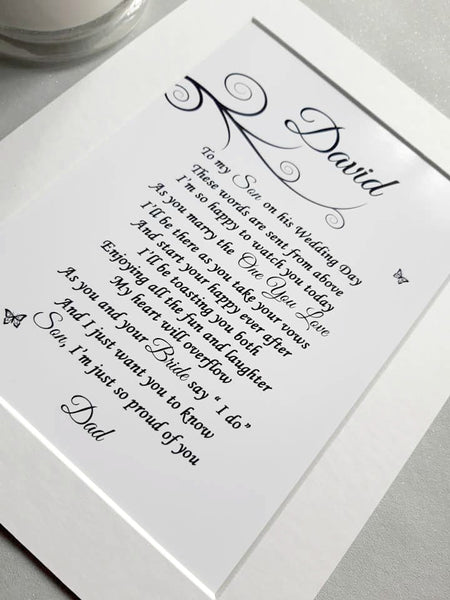 David
To my Son on his Wedding Day
These words are sent from above
I'm so happy to watch you today
As you marry the One You Love
I'll be there as you take your vows
And start your happy ever after
I'll be toasting you both
Enjoying all the fun and laughter
My heart will overflow
As you and your Bride say “ I do ”
And I just want you to know
Son, I'm just so proud of you
Dad